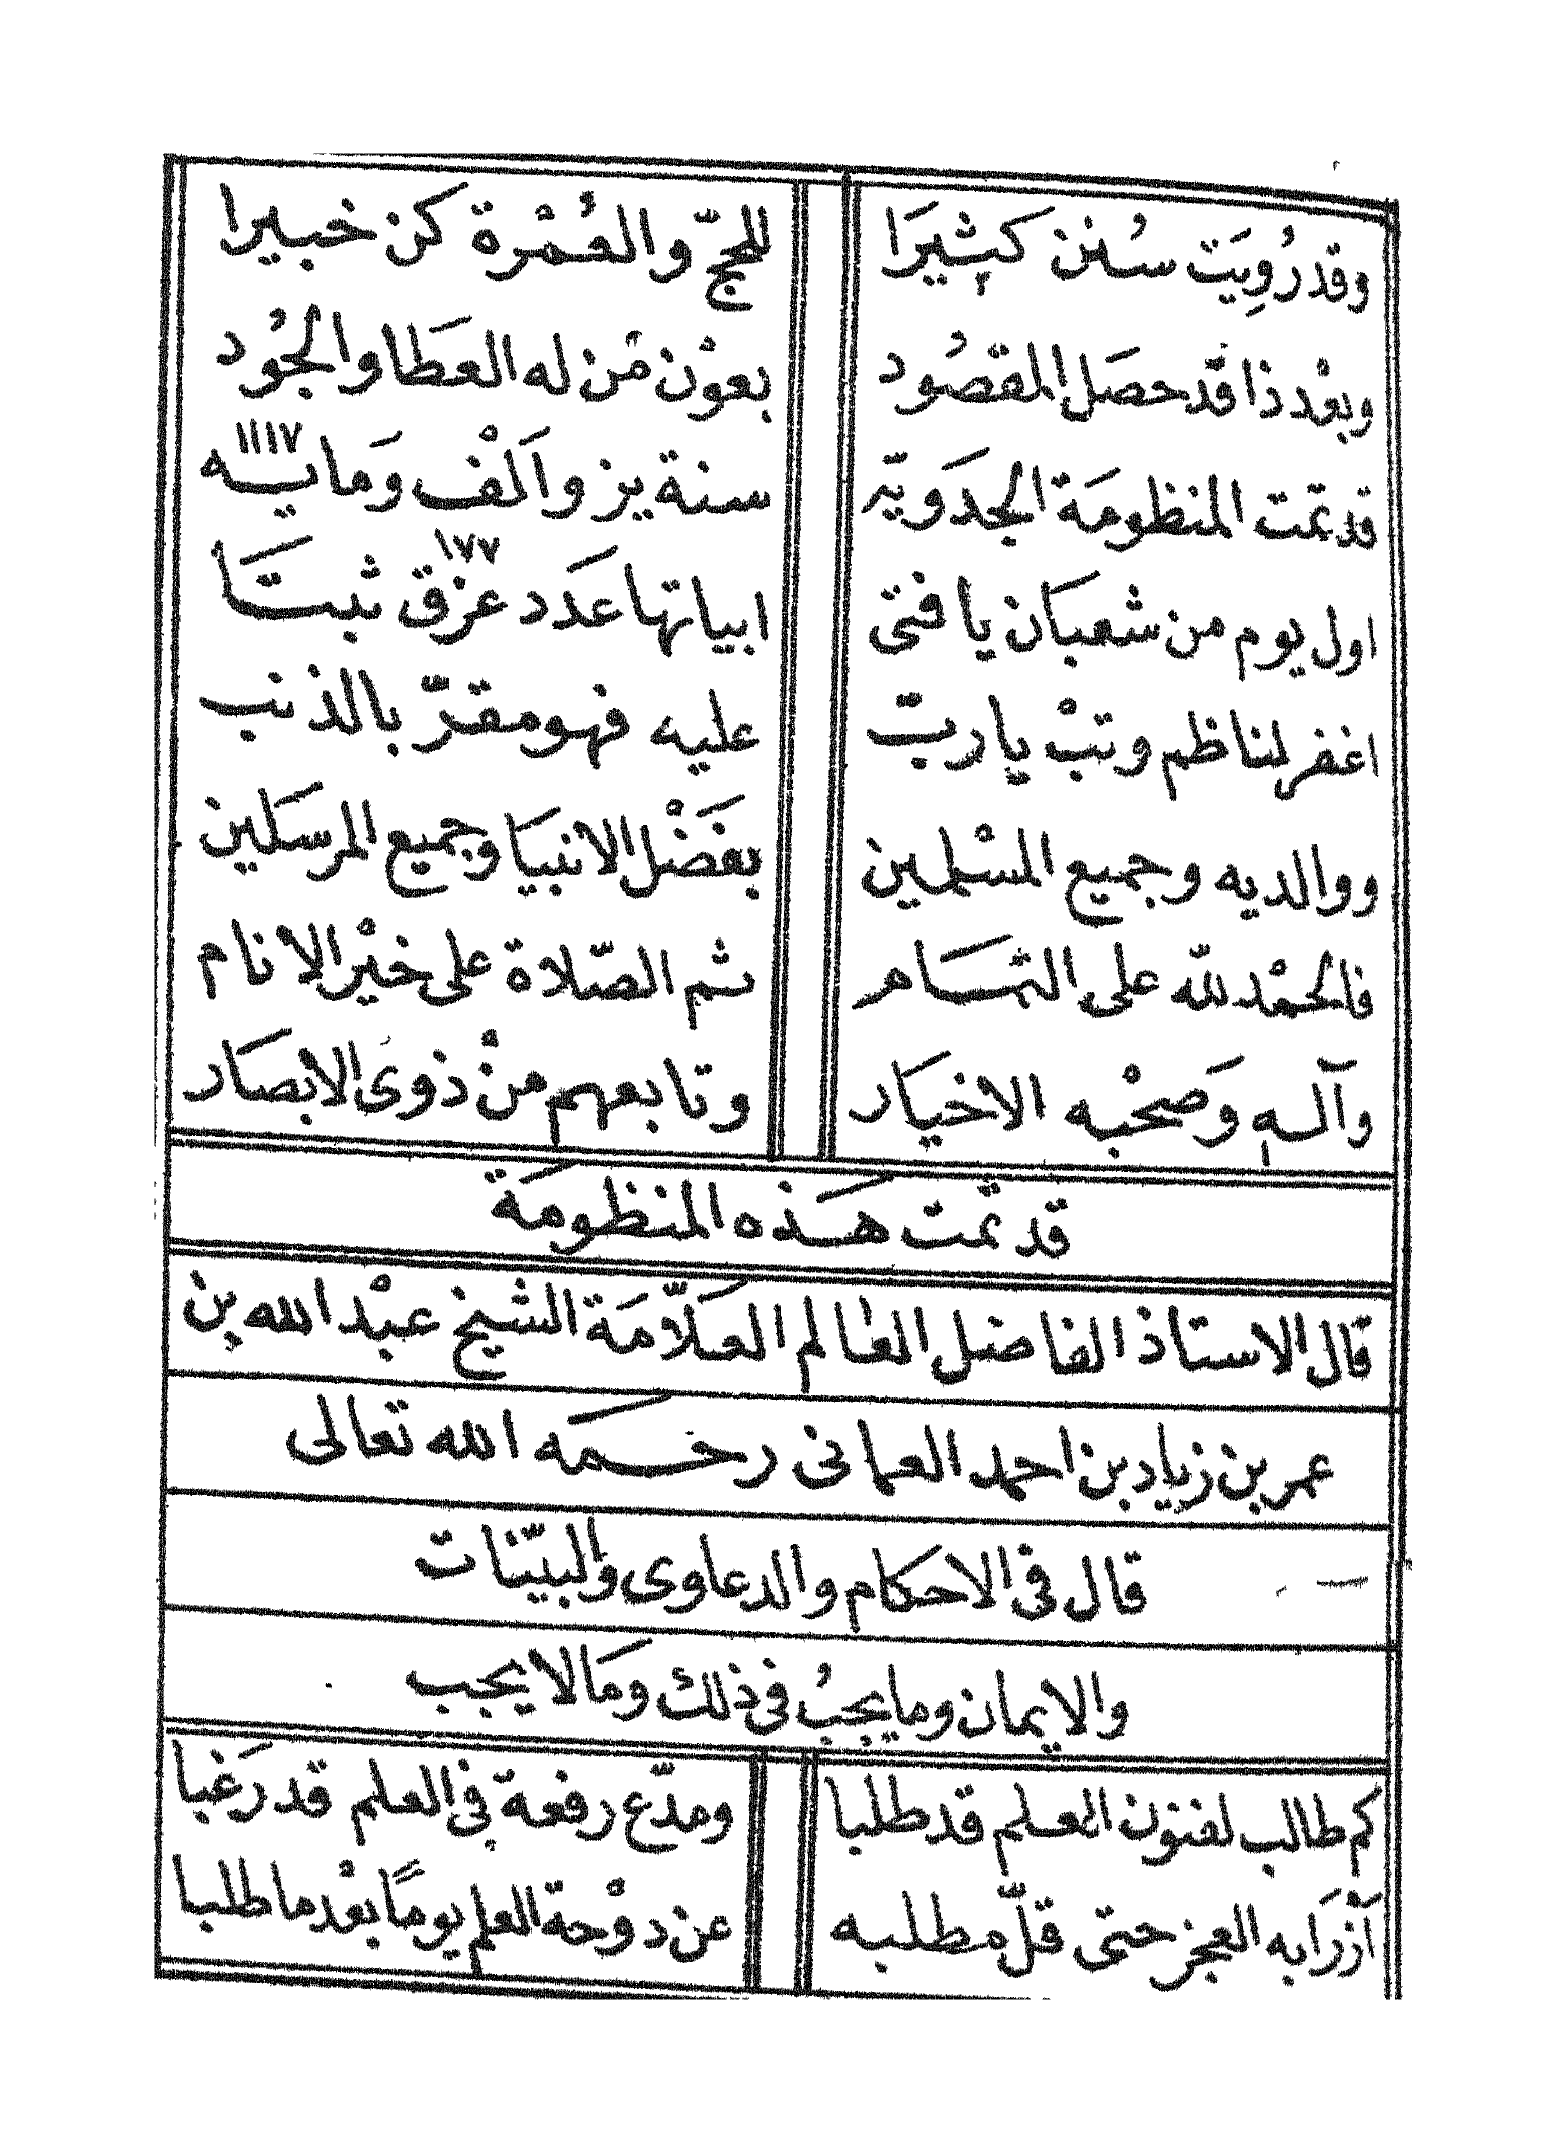 وقد رُوِيَت سُنن كَثِيرَا للحجّ والعُمْرة كن خبيرا
وبعْد ذا قد حصَل المقصُود بعوْن مَن له العَطا والجُود
قد تمّت المنظومَة الجدَويّه سنة يز وألْف وَمايـه ١١١٧
اول يوم من شعبَان يا فتى ابياتها عدَد عزق ثبتَا ١٧٧
اغفر لناظم وتبْ يا ربّ عليه فهو مقرّ بالذنب
ووالديه وجميع المسْلمين بفَضْل الانبيَا وجميع المرسَلين
فالحمْد للّه على التمَام ثم الصّلاة على خيْر الانام
وآلـهِ وَصحْبه الاخيَار وتابعهم منْ ذوى الابصَار
قد تمّت هَذه المنظومَة
قال الاستاذ الفاضل العالم العَلّامَة الشيخ عبْد الله بن
عمر بن زياد بن احمد العمانى رحمَه الله تعالى
قال فى الاحكام والدعاوى والبيّنات
والايمان وما يجبُ فى ذلك ومَا لا يجب
كم طالب لفنون العلم قد طلبا ومدّع رفعة فى العلم قد رَغبا
أزْرَا به العجز حتى قلّ مطلبه عن دوْحة العلم يومًا بعْد ما طلبا